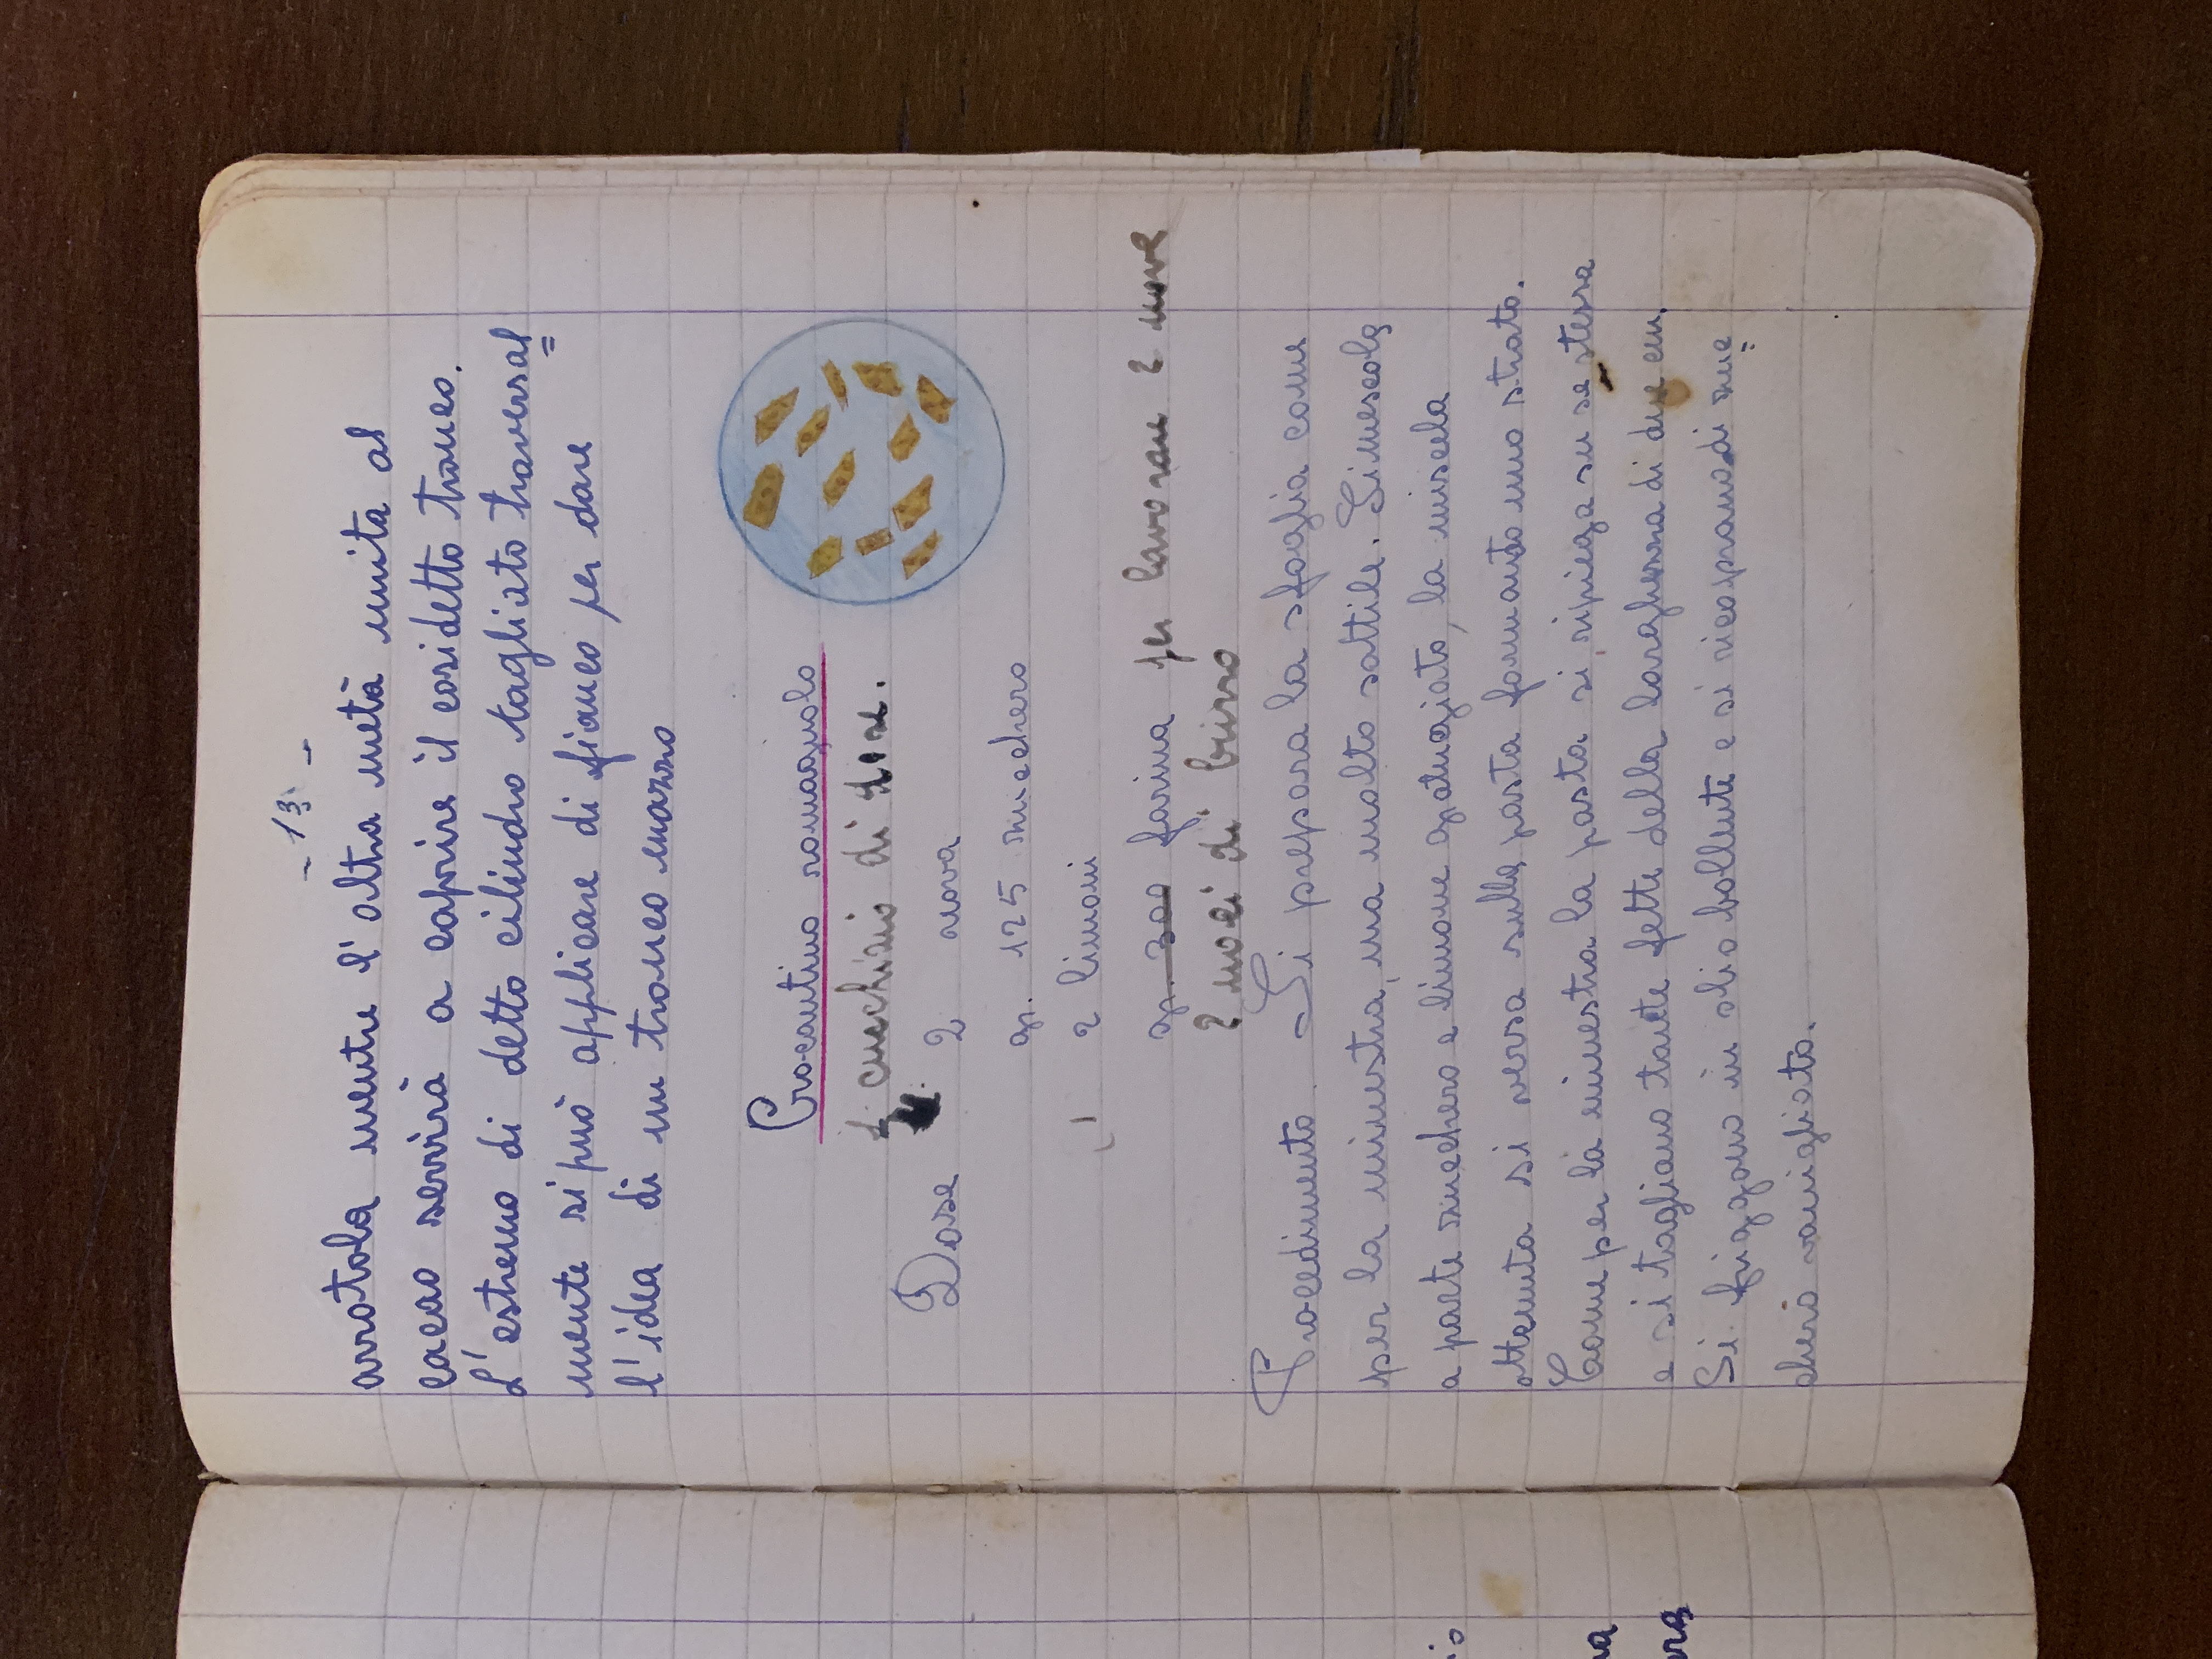 - 13 -
arrotola mentre l'altra metà unita al
cacao servirà a coprire il cosidetto tronco.
L'estremo di detto cilindro tagliato traversal=
mente si può applicare di fianco per dare
l'idea di un tronco mozzo
Crocantino romagnolo
1 cucchiaio di
Dose 2 uova
gr. 125 zucchero
2 limoni
gr. 300 farina per lavorare 2 uova
2 noci di burro
Procedimento. Si prepara la sfoglia come
per la minestra, ma molto sottile. Si mescola
a parte zucchero e limone gratugiato, la miscela
ottenuta si versa sulla pasta formando uno strato.
Come per la minestra la pasta si ripiega su se stessa
e si tagliano tante fette della larghezza di due cm.
Si friggono in olio bollente e si ricoprono di zuc=
chero vanigliato.
io
na
ora